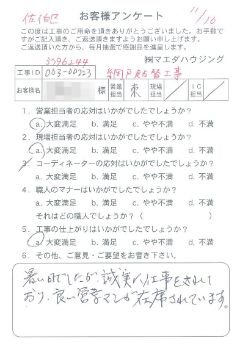 佐伯区
お客様アンケート
11/10
この度は工事のご用命を頂きありがとうございました。お手数で
すがご記入頂き、ご返送頂きますようお願い申し上げます。
ご返送頂いた方から、毎月抽選で感謝品を進呈します。
3396244
㈱マエダハウジング
工事ID 003-00923 網戸貼替工事
お客様名 様 営業担当 東 現場担当 IC担当
1. 営業担当者の応対はいかがでしたでしょうか?
a. 大変満足 b. 満足 c. やや不満 d. 不満
2. 現場担当者の応対はいかがでしたでしょうか?
a. 大変満足 b. 満足 c. やや不満 d. 不満
3. コーディネーターの応対はいかがでしたでしょうか?
a. 大変満足 b. 満足 c. やや不満 d. 不満
4. 職人のマナーはいかがでしたでしょうか?
a. 大変満足 b. 満足 c. やや不満 d. 不満
それはどの職人でしょうか?( )
5. 工事の仕上がりはいかがでしたでしょうか?
a. 大変満足 b. 満足 c. やや不満 d. 不満
6. その他、ご意見・ご要望をお書き下さい。
暑い中でしたが誠実な仕事をされて
おり、良い営業マンが在席されています。